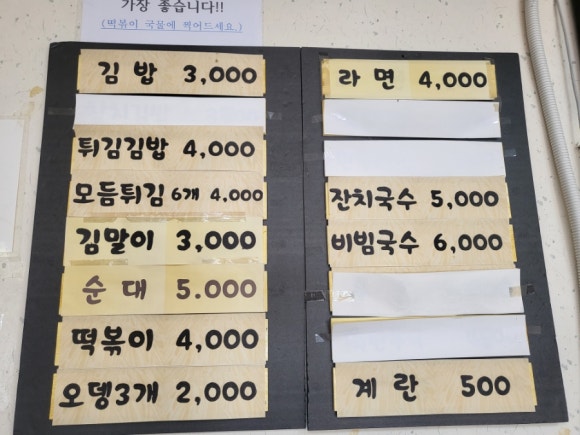 가장 좋습니다!!
(떡볶이 국물에 찍어드세요.)
김밥 3,000
튀김김밥 4,000
모듬튀김 6개 4,000
김말이 3,000
순대 5.000
떡볶이 4,000
오뎅3개 2,000
라면 4,000
잔치국수 5,000
비빔국수 6,000
계란 500